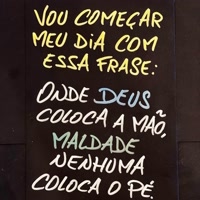 VOU COMEÇAR
MEU DIA COM
ESSA FRASE:
ONDE DEUS
COLOCA A MÃO,
MALDADE
NENHUMA
COLOCA O PÉ.